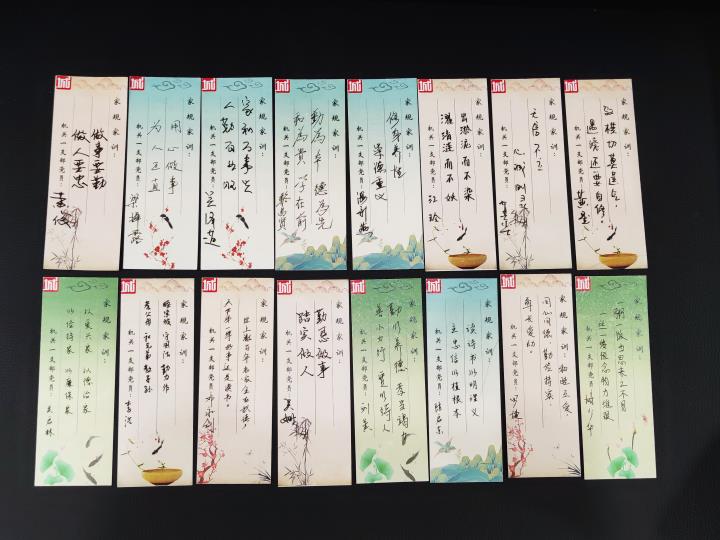 家规家训：
做事要勤
做人要忠
机关一支部党员：
家规家训：
用心做事
为人正直
机关一支部党员：
家规家训：
家和万事兴
人勤百业旺
机关一支部党员：
家规家训：
勤为本 德为先
和为贵 学在前
机关一支部党员：
家规家训：
修身养性
崇德重义
机关一支部党员：
家规家训：
出淤泥而不染
濯清涟而不妖
机关一支部党员：
江玲
家规家训：
无信不立
机关一支部党员：
家规家训：
机关一支部党员：
家规家训：
以爱兴家 以德治家
以俭持家 以廉保家
机关一支部党员：
家规家训：
睦宗族 守国法 勤力作
孝公婆 和兄弟 教子孙
机关一支部党员：
家规家训：
世上数百年老家全在积德，
天下第一等好事还是读书。
机关一支部党员：
家规家训：
勤恳做事
踏实做人
机关一支部党员：
家规家训：
机关一支部党员：
家规家训：
读诗书以明理义
立忠信以植根本
机关一支部党员：
家规家训：
和睦互爱，
同心同德，勤俭持家，
尊长爱幼。
机关一支部党员：
家规家训：
一粥一饭当思来之不易
一丝一缕恒念物力维艰
机关一支部党员：